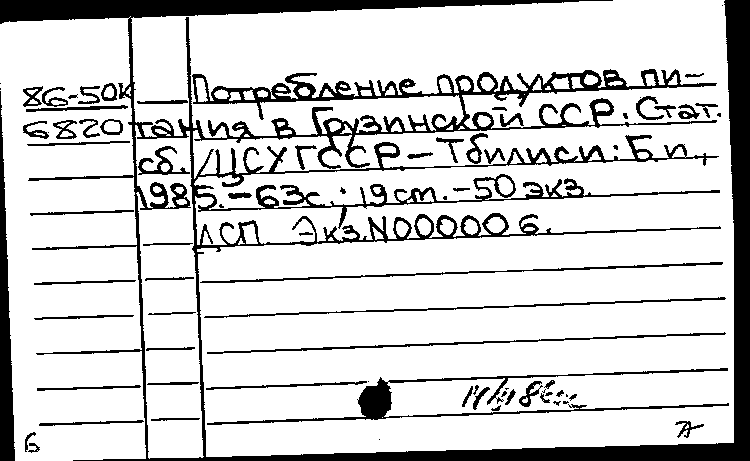 86-50к Потребление продуктов пи-
6820 тания в Грузинской ССР: Стат.
сб. /ЦСУ ГССР.-Тбилиси: Б.и.,
1985.-63с.; 19 см.-50 экз.
ДСП. Экз.N000006.
6